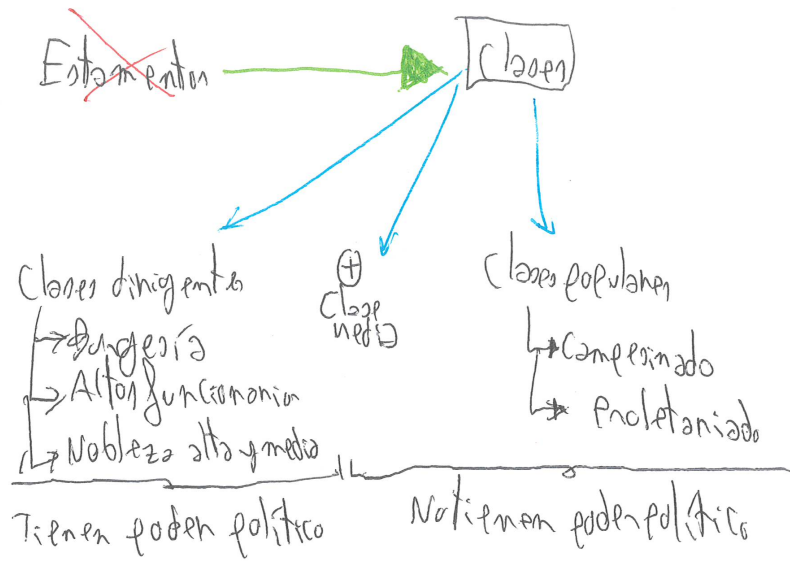 Estamentos
Clases
Clases dirigentes
Burgesía
Altos funcionarios
Nobleza alta y media
+
Clase
media
Clases populares
Campesinado
Proletariado
Tienen poder político
No tienen poder político